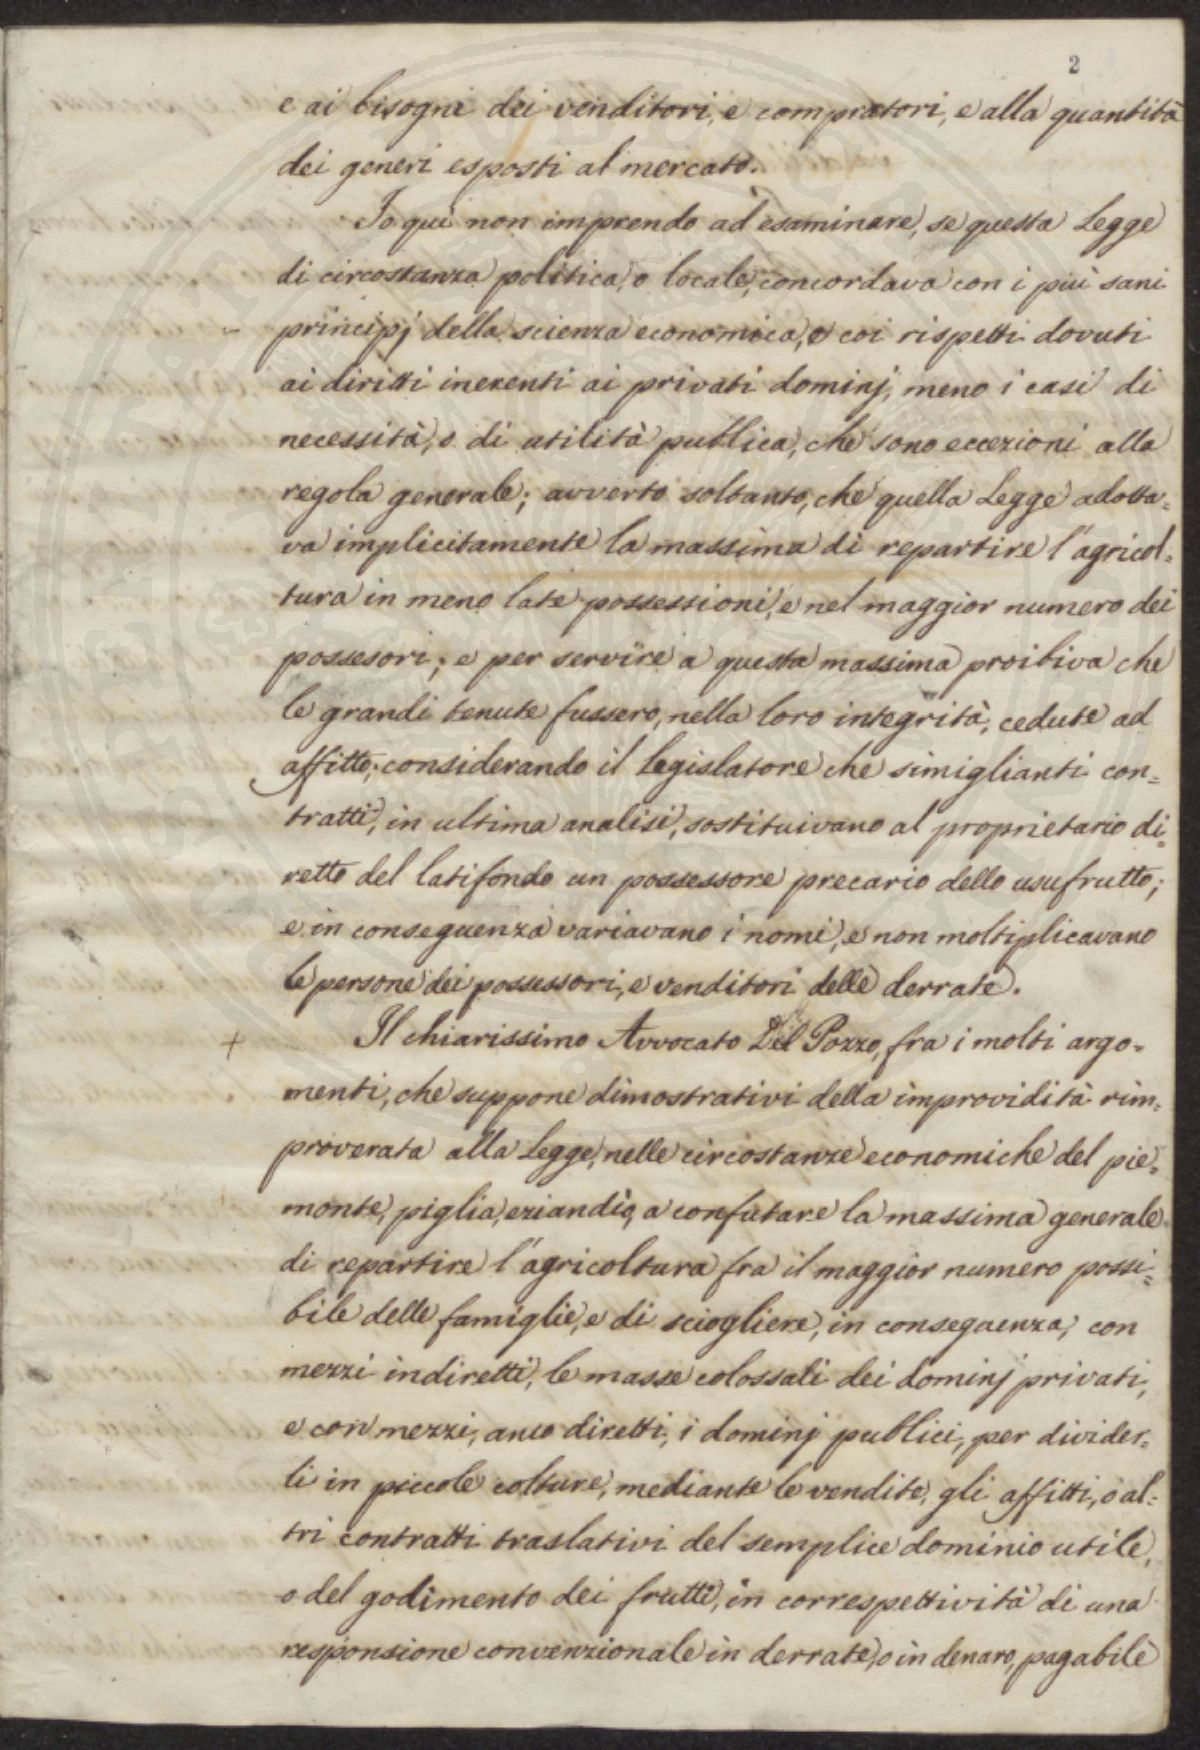 2
e ai bisogni dei venditori, e compratori, e alla quantità
dei generi esposti al mercato.
Io qui non imprendo ad esaminare, se questa Legge
di circostanza politica, o locale, concordava con i più sani
principj della scienza economica, e coi rispetti dovuti
ai diritti inerenti ai privati dominj, meno i casi di
necessità, o di utilità publica, che sono eccezioni alla
regola generale; avverto soltanto, che quella Legge adotta=
va implicitamente la massima di repartire l'agricol=
tura in meno late possessioni, e nel maggior numero dei
possesori; e per servire a questa massima proibiva che
le grandi tenute fussero, nella loro integrità, cedute ad
affitto; considerando il Legislatore che simiglianti con=
tratti, in ultima analisi, sostituivano al proprietario di=
retto del latifondo un possessore precario dello usufrutto;
e in conseguenza variavano i nomi, e non moltiplicavano
le persone dei possessori, e venditori delle derrate.
+ Il chiarissimo Avvocato Del Pozzo, fra i molti argo=
menti, che suppone dimostrativi della improvidità rim=
proverata alla Legge, nelle circostanze economiche del pie=
monte, piglia, eziandìo, a confutare la massima generale
di repartire l'agricoltura fra il maggior numero possi=
bile delle famiglie, e di sciogliere, in conseguenza, con
mezzi indiretti, le masse colossali dei dominj privati,
e con mezzi, anco diretti, i dominj publici, per divider=
li in piccole colture, mediante le vendite, gli affitti, o al=
tri contratti traslativi del semplice dominio utile,
o del godimento dei frutti, in correspettività di una
responsione convenzionale in derrate, o in denaro, pagabile